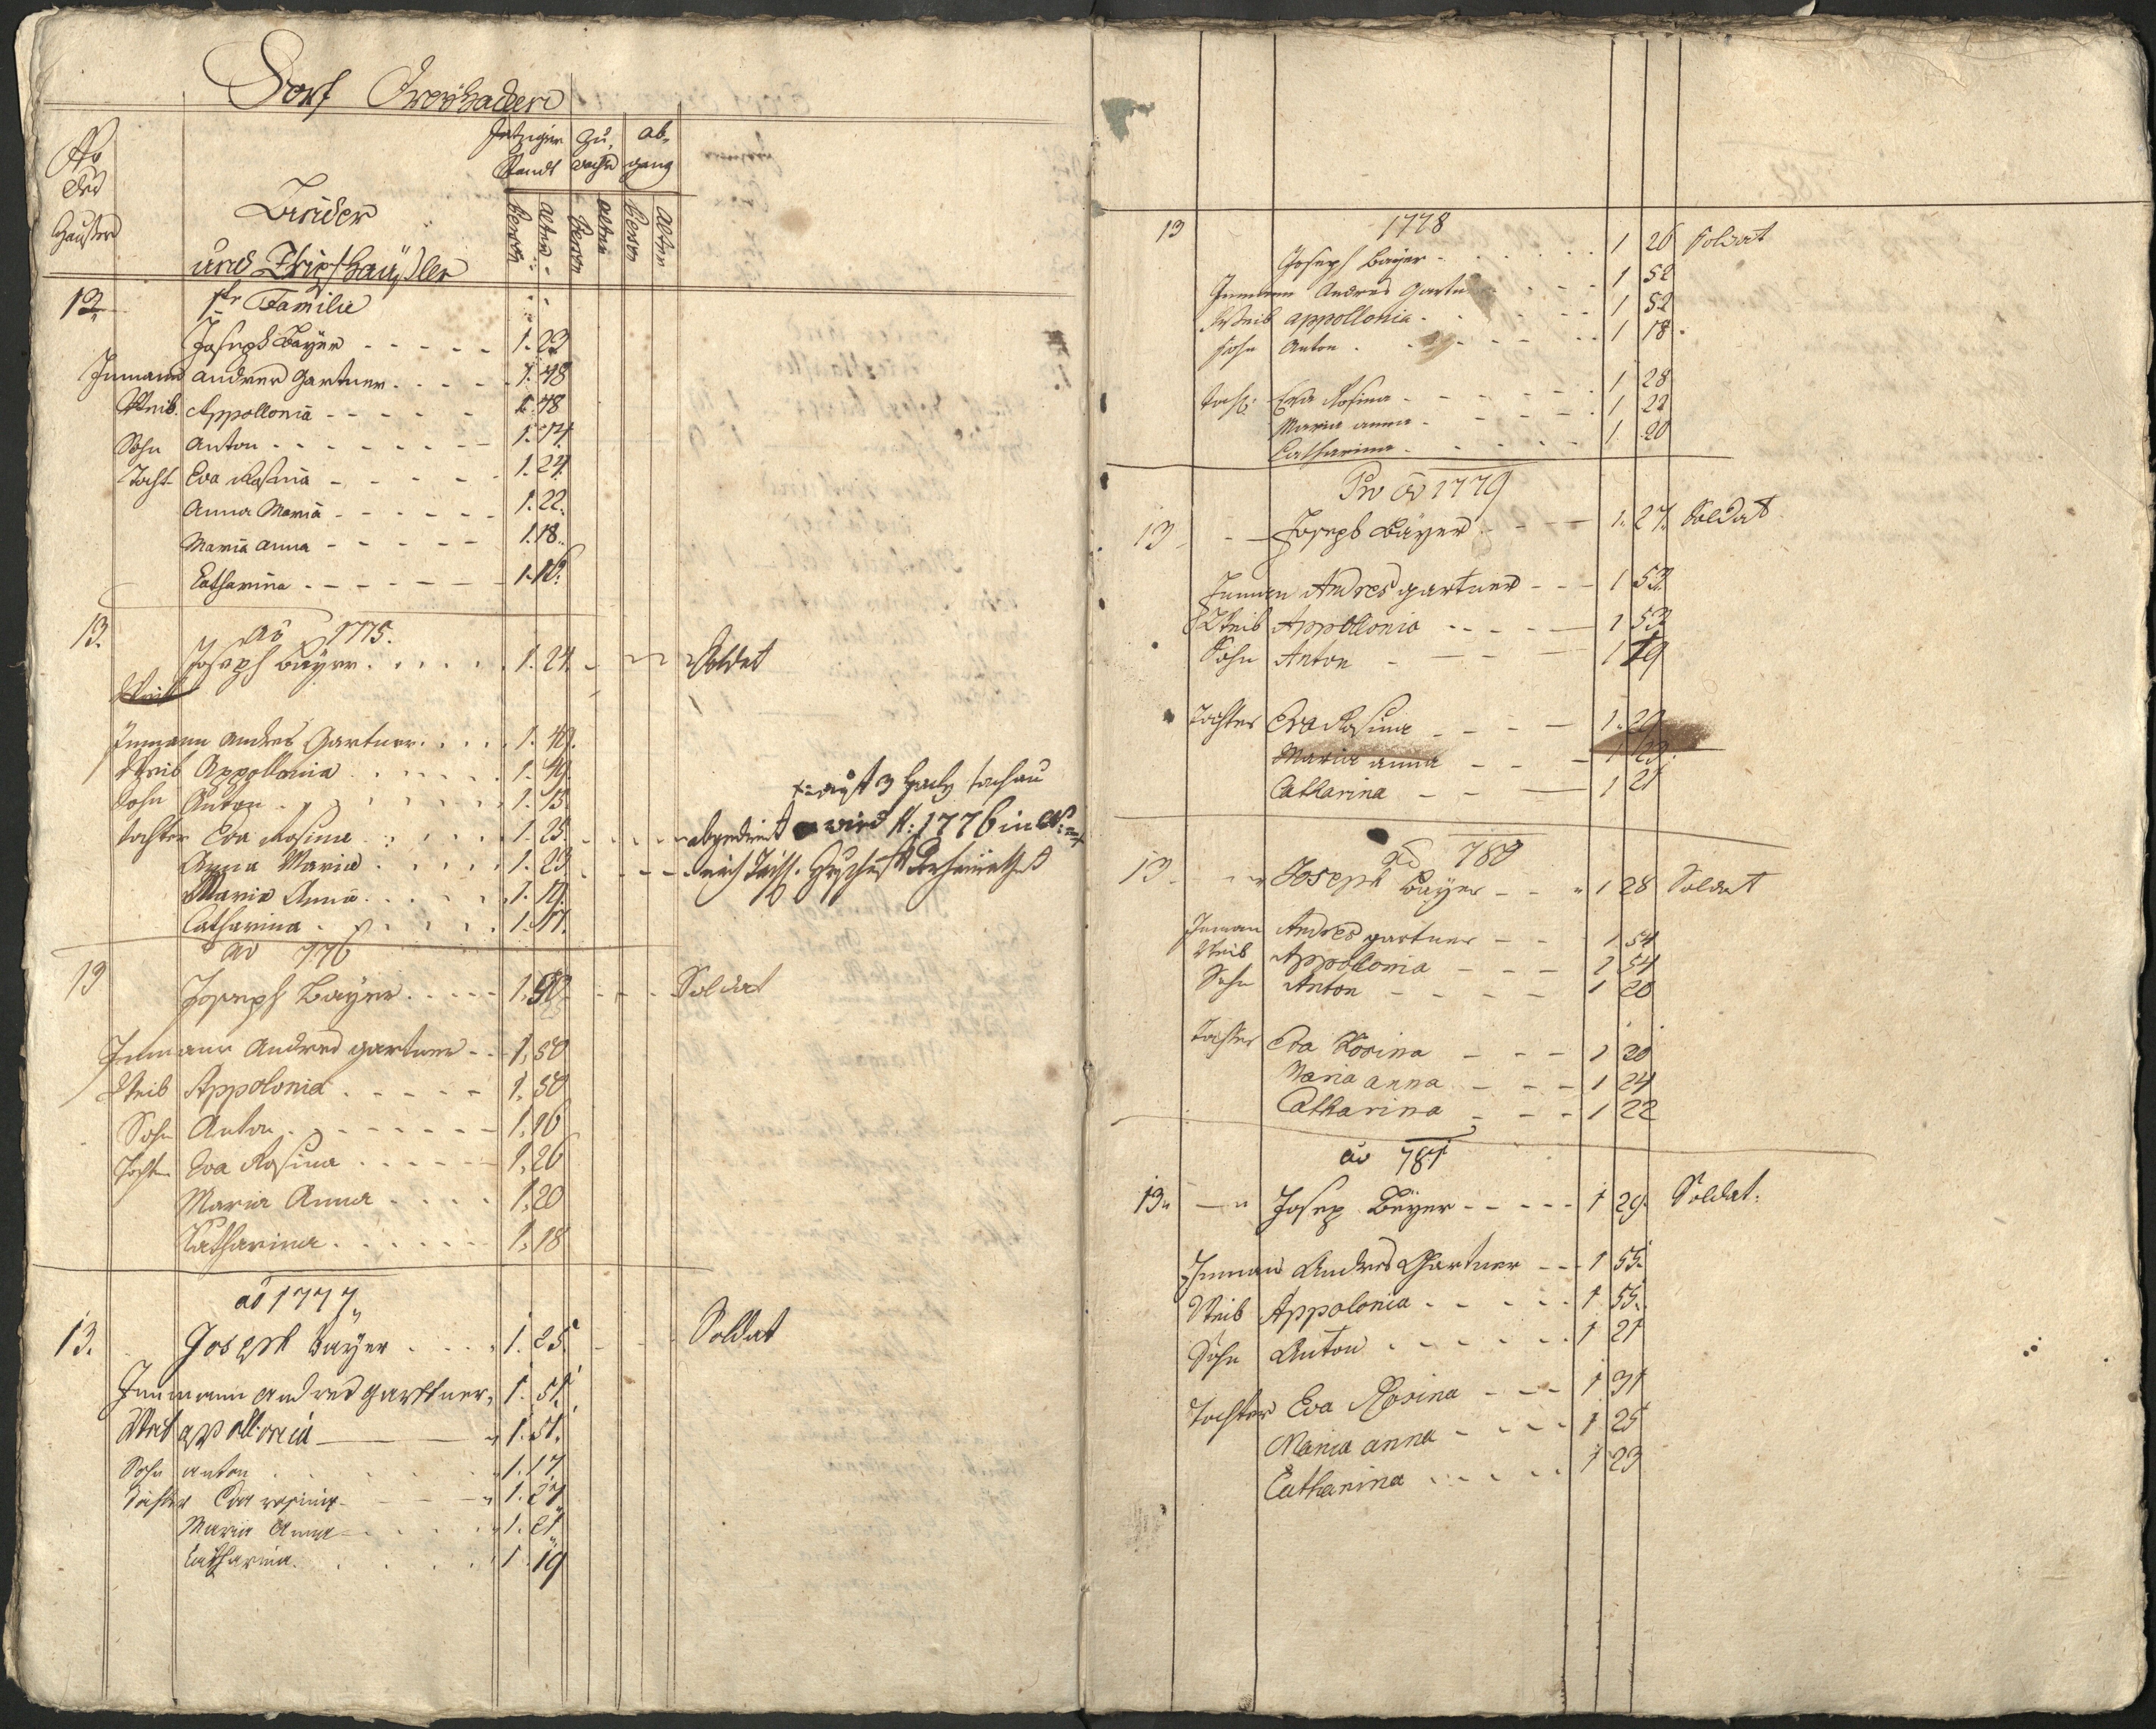 Dorf
No
des
Hauses
Jetziger
Standt
Zu,
wachs
ab,
gang
Person
Alter
Person
Alter
Person
Alter
und
13. 1te Familie
Joseph Bayer - - - - - 1. 23
Inmann Andres Gartner. - - - 1. 48
Weib. Appollonia - - - - - 1. 48
Sohn Anton - - - - - - 1. 14.
Tocht Eva Rosina - - - - 1. 24.
Anna Maria - - - - - - 1. 22.
Maria Anna - - - - - 1. 18.
Catharina - - - - - - 1. 16.
13. ao 1775.
Joseph Bayer. . . . . . 1. 24. Soldat
Weib
Inmann Andres Gartner. . . . 1. 49.
Weib Appollonia . . . . . 1. 49.
Sohn Anton . . . . . . 1. 15.
Tochter Eva Rosina . . . . . 1. 25.
wird A: 1776 in
Anna Maria . . . . . 1. 23.
Maria Anna . . . . . 1. 19.
Catharina . . . . . . 1. 17.
ao 776
13 Joseph Bayer. . . . - - 1. Soldat
Inmann Andres Gartner - - 1. 50
Weib Appolonia . - - - - 1. 50
Sohn Anton . - - - - - - 1. 16
Tochter Eva Rosina . . . . . 1. 26
Maria Anna . . . . 1. 20
Catharina . . . . . . 1. 18
ao 1777
13. Joseph Bayer . . . . 1. 25. Soldat
Inmann Andres Garttner, 1. 51.
Weib apollonia 1. 51.
Sohn anton . . . . . 1. 17.
Tochter Eva rosina - - - 1. 27
Maria Anna - . . . . 1. 21
Catharina. . . . . . 1. 19
13 1778
Joseph Bayer - . . . . . 1 26 Soldat
Inmann Andres Gartner . . - 1 52
Weib appollonia . . . - - 1 52
Sohn Anton . . . - - . . 1 18.
Toch: Eva Rosina - - - - - 1 28
Maria anna - - - - . 1 22
Catharina - . - - - - 1 20
Pro ao 1779
13 - - Joseph Bayer - - - 1. 27. Soldat
Inman Andres gartner - - - 1 53
Weib Appollonia - - - - - 1 53
Sohn Anton - - - - 1 19
Tochter Eva Rosina - - - 1. 29
Maria anna - - - 1 23.
Catharina - - - 1 21
ao 780
13 - - Joseph Bayer - - 1 28 Soldat
Inman Andres gartner - - 1 54
Weib Appolonia - - - 1 54
Sohn Anton - - - - 1 20
Tochter Eva Rosina - - - 1
Maria anna - - - 1 24
Catharina - - - 1 22
ao 781
13 - Josep Beyer - - - - - 1 29. Soldat.
Inman Andres Gartner - - - 1 55.
Weib Appolonia - . - . . 1 55.
Sohn Anton . - - - - . 1 21
Tochter Eva Rosina - - - 1 31
Maria anna - - - - 1 25
Catharina . . - . . . 1 23